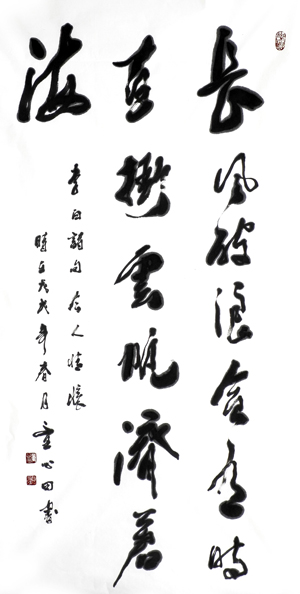 長風破浪會有時
直掛雲帆濟蒼
海
李白詩句 念人情懷
時在戊戌年春月 童心田書